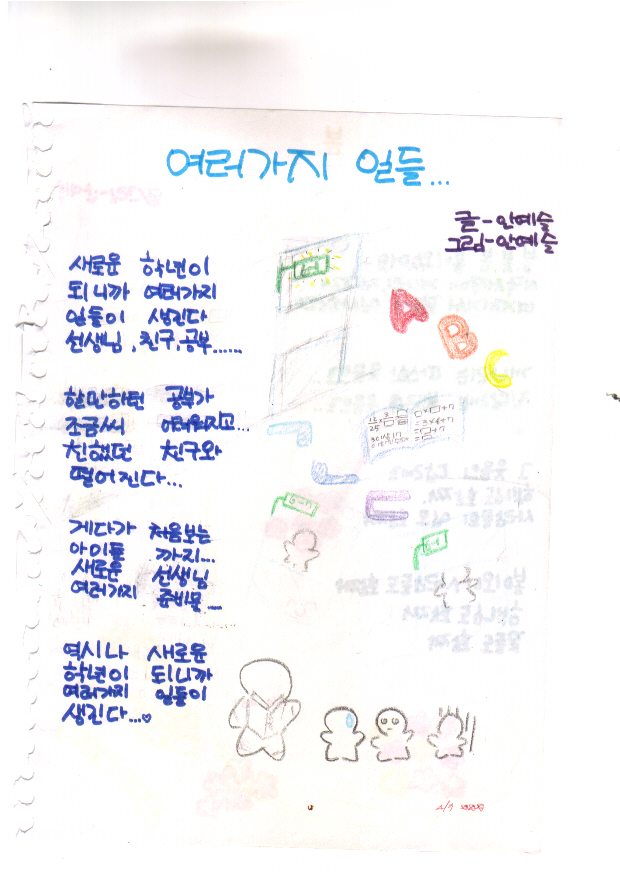 여러가지 일들...
글-안예슬
그림-안예슬
새로운 학년이
되니까 여러가지
일들이 생긴다
선생님, 친구, 공부......
만만하던 공부가
조금씩 어려워지고...
친했던 친구와
떨어진다...
게다가 처음보는
아이들 까지...
새로운 선생님
여러가지 준비물...
역시나 새로운
학년이 되니까
여러가지 일들이
생긴다...♡
A
B
C
ㄱ
ㄴ
ㄷ